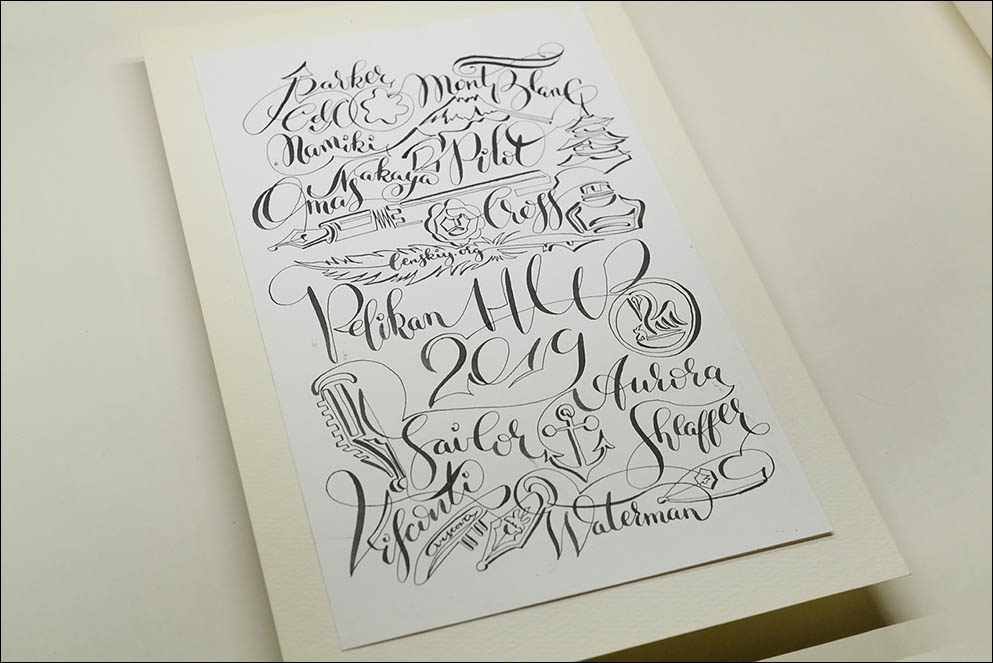 Parker
MontBlanc
Namiki
Pilot
Nakaya
Omas
Cross
lenskiy.org
Pelikan HUB
2019
Aurora
Sailor
Sheaffer
Visconti
Waterman